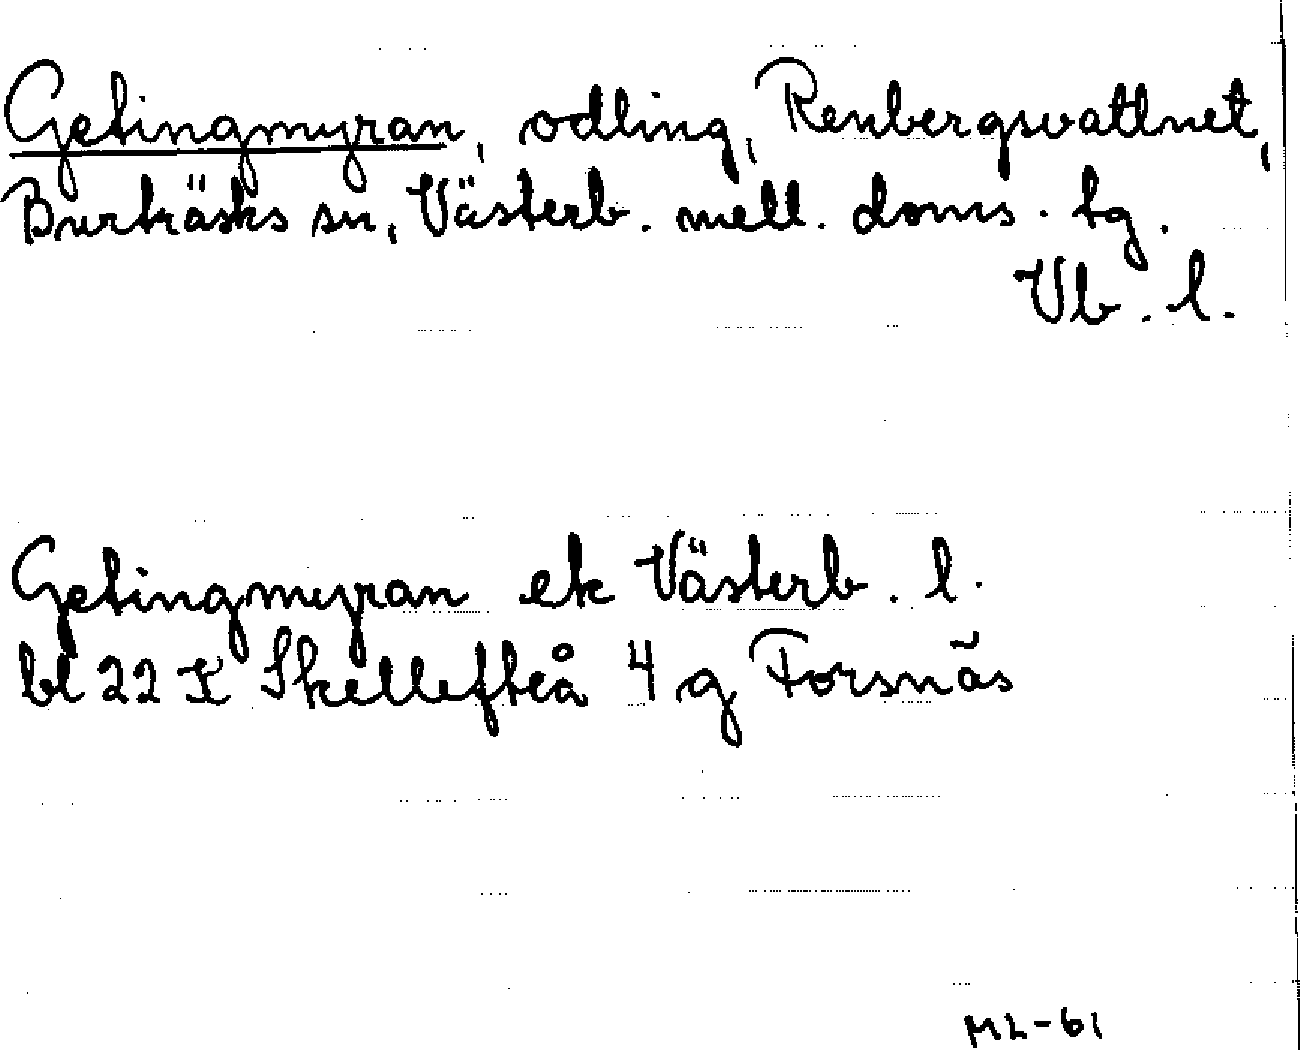 Getingmyran, odling, Renbergsvattnet,
Burträsks sn, Västerb. mell. doms. tg.
Vb. l.
Getingmyran ek Västerb. l.
bl 22 K Skellefteå 4 g Forsnäs
ML-61